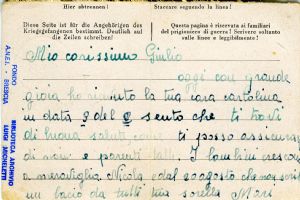 Hier abtrennen!
Staccare seguendo la linea!
Diese Seite ist für die Angehörigen des
Kriegsgefangenen bestimmt. Deutlich auf
die Zeilen schreiben!
Questa pagina è riservata ai familiari
del prigioniero di guerra! Scrivere soltanto
sulle linee e leggibilmente!
Mio carissimo Giulio
oggi con grande
gioia ho la tua cara cartolina
in data sento che ti trovi
di buona salute, ti posso assicurar
di noi e parenti tutti I bambini
a meraviglia Nicola dal agosto che non scrive
un bacio da tutti tua sorella
FONDO
A.N.E.I. - BRESCIA
BIBLIOTECA ARCHIVIO
LUIGI MICHELETTI